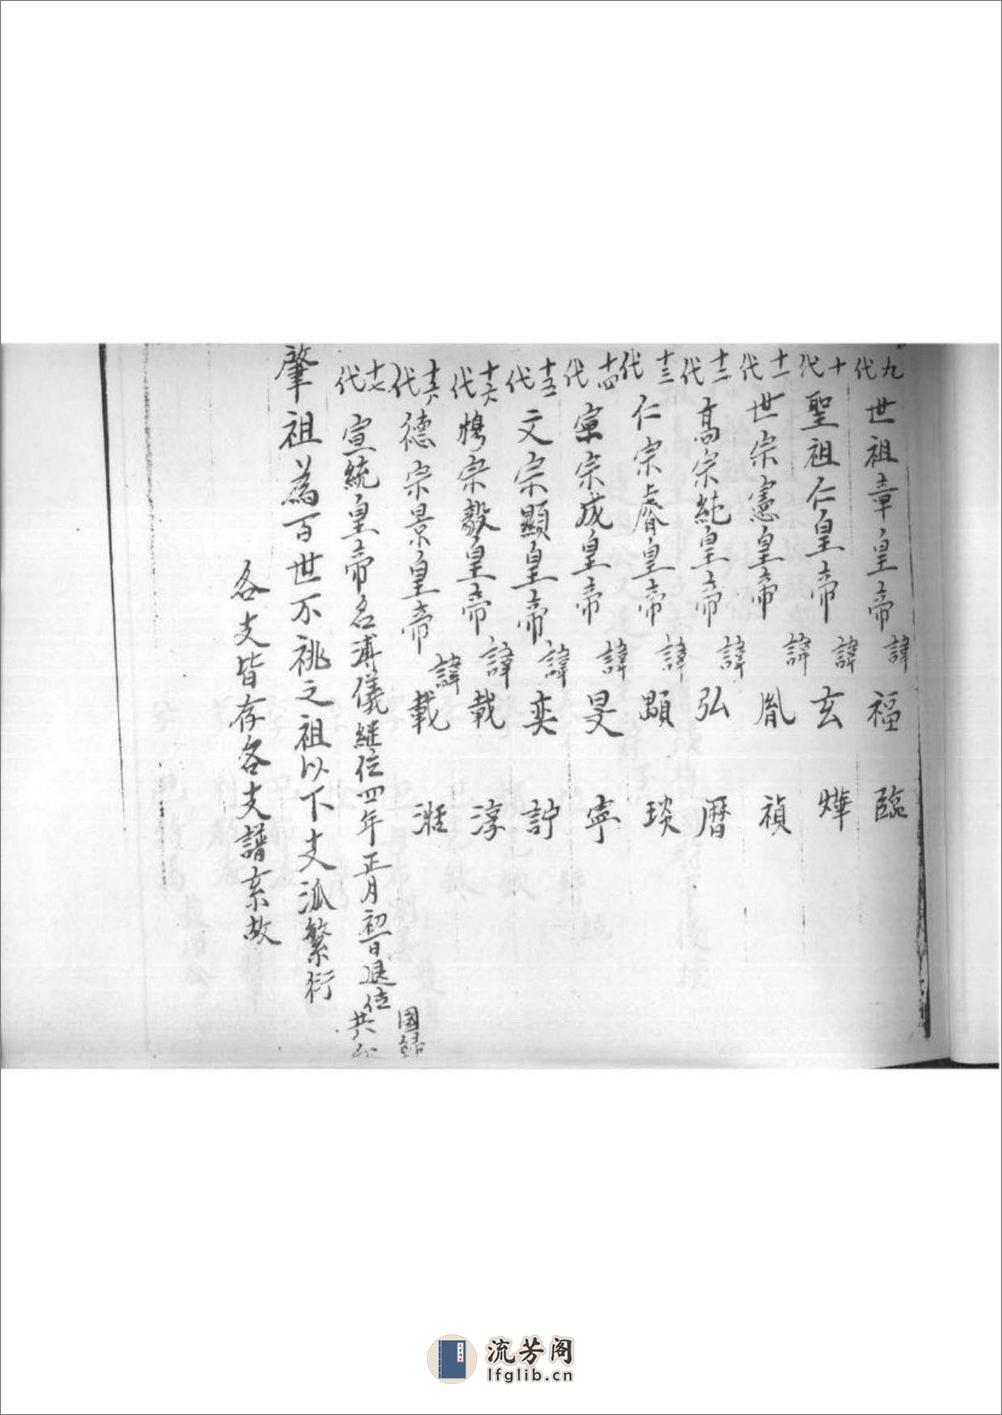 九代 世祖章皇帝 諱 福 臨
十代 聖祖仁皇帝 諱 玄 燁
十一代 世宗憲皇帝 諱 胤 禎
十二代 高宗純皇帝 諱 弘 曆
十三代 仁宗睿皇帝 諱 顒 琰
十四代 宣宗成皇帝 諱 旻 寧
十五代 文宗顯皇帝 諱 奕 詝
十六代 穆宗毅皇帝 諱 載 淳
德宗景皇帝 諱 載 湉
十七代 宣統皇帝名溥儀繼位四年正月初一日退位 國歸共和
肇祖為百世不祧之祖以下支派繁衍
各支皆存各支譜系故
流芳阁
lfglib.cn